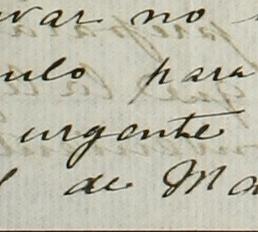 var no
ulo para
urgente
de Ma